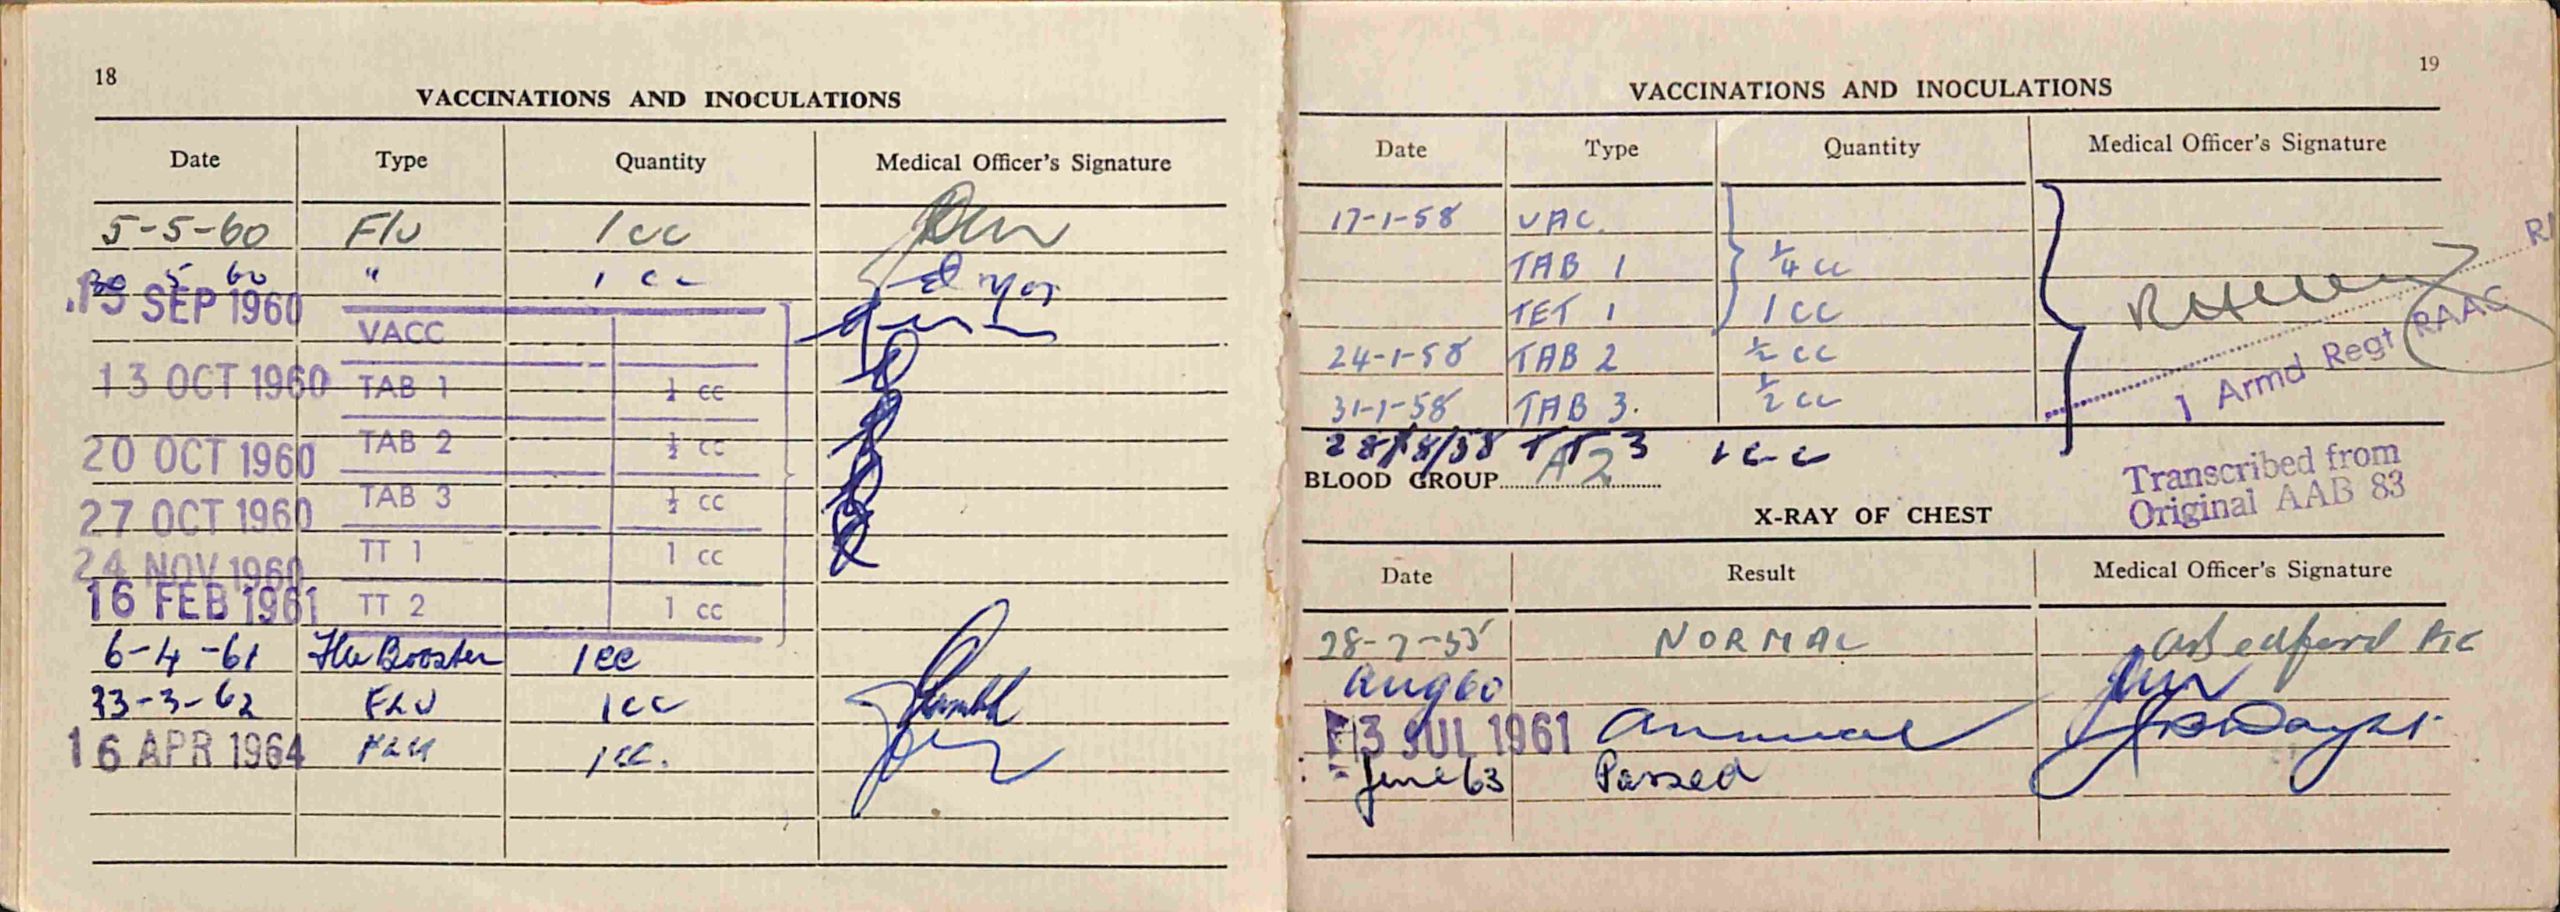 18
VACCINATIONS AND INOCULATIONS
Date Type Quantity Medical Officer's Signature
5-5-60 Flu 1cc
30 5 60 " 1 cc
15 SEP 1960 VACC
13 OCT 1960 TAB 1 ¼ cc
20 OCT 1960 TAB 2 ½ cc
27 OCT 1960 TAB 3 ½ cc
24 NOV 1960 TT 1 1 cc
16 FEB 1961 TT 2 1 cc
6-4-61 Flu Booster 1cc
23-3-62 FLU 1cc
16 APR 1964 FLU 1cc.
19
VACCINATIONS AND INOCULATIONS
Date Type Quantity Medical Officer's Signature
17-1-58 VAC.
TAB 1 ¼ cc
TET 1 1 cc
24-1-58 TAB 2 ½ cc
31-1-58 TAB 3. ½ cc
1 Armd Regt RAAC
28/8/58 TT 3 1cc
BLOOD GROUP A2
Transcribed from
Original AAB 83
X-RAY OF CHEST
Date Result Medical Officer's Signature
28-7-55 NORMAL
Aug 60
13 JUL 1961 Annual
June 63 Passed